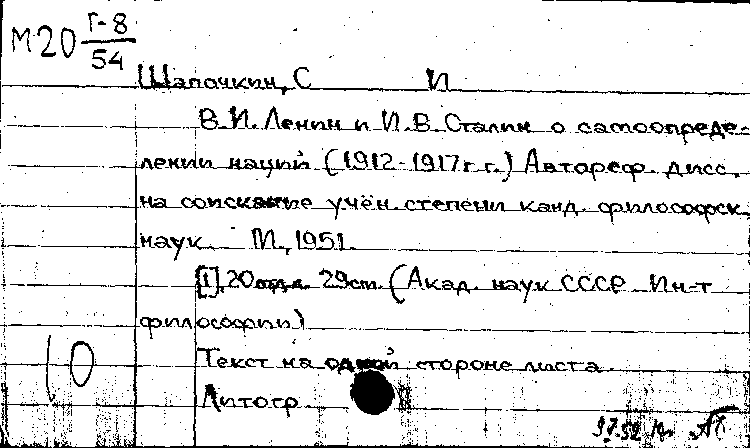 М20 Г-8/54
Шапочкин, С И
В.И. Ленин и И.В. Сталин о самоопреде-
лении наций (1912-1917г.г.) Автореф. дисс.
на соискание учён. степени канд. философск.
наук. М., 1951.
[1], 20 отд.л. 29см. (Акад. наук СССР Ин-т
философии)
Текст на одной стороне листа.
Литогр.
10